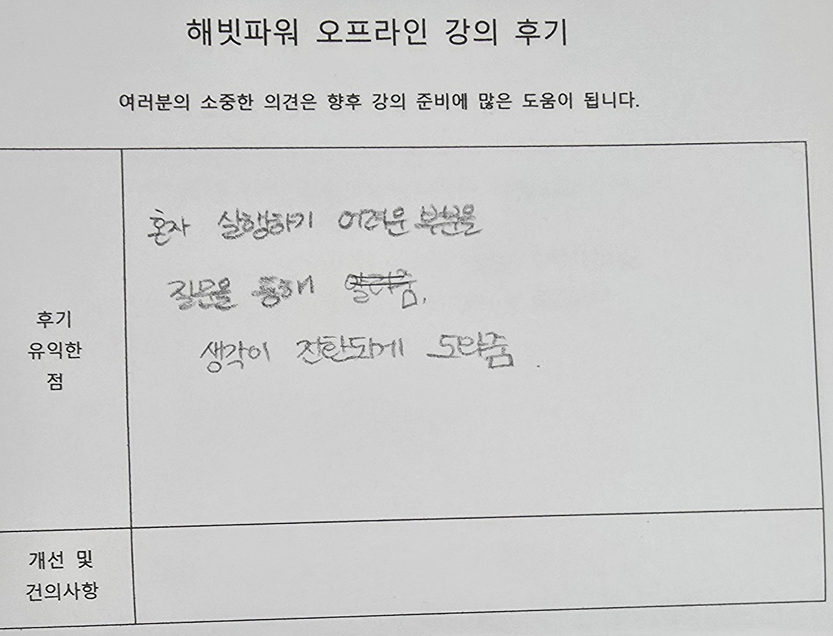 해빗파워 오프라인 강의 후기
여러분의 소중한 의견은 향후 강의 준비에 많은 도움이 됩니다.
후기
유익한
점
혼자 실행하기 어려운 부분을
질문을 통해
생각이 전환되게 도와줌.
개선 및
건의사항